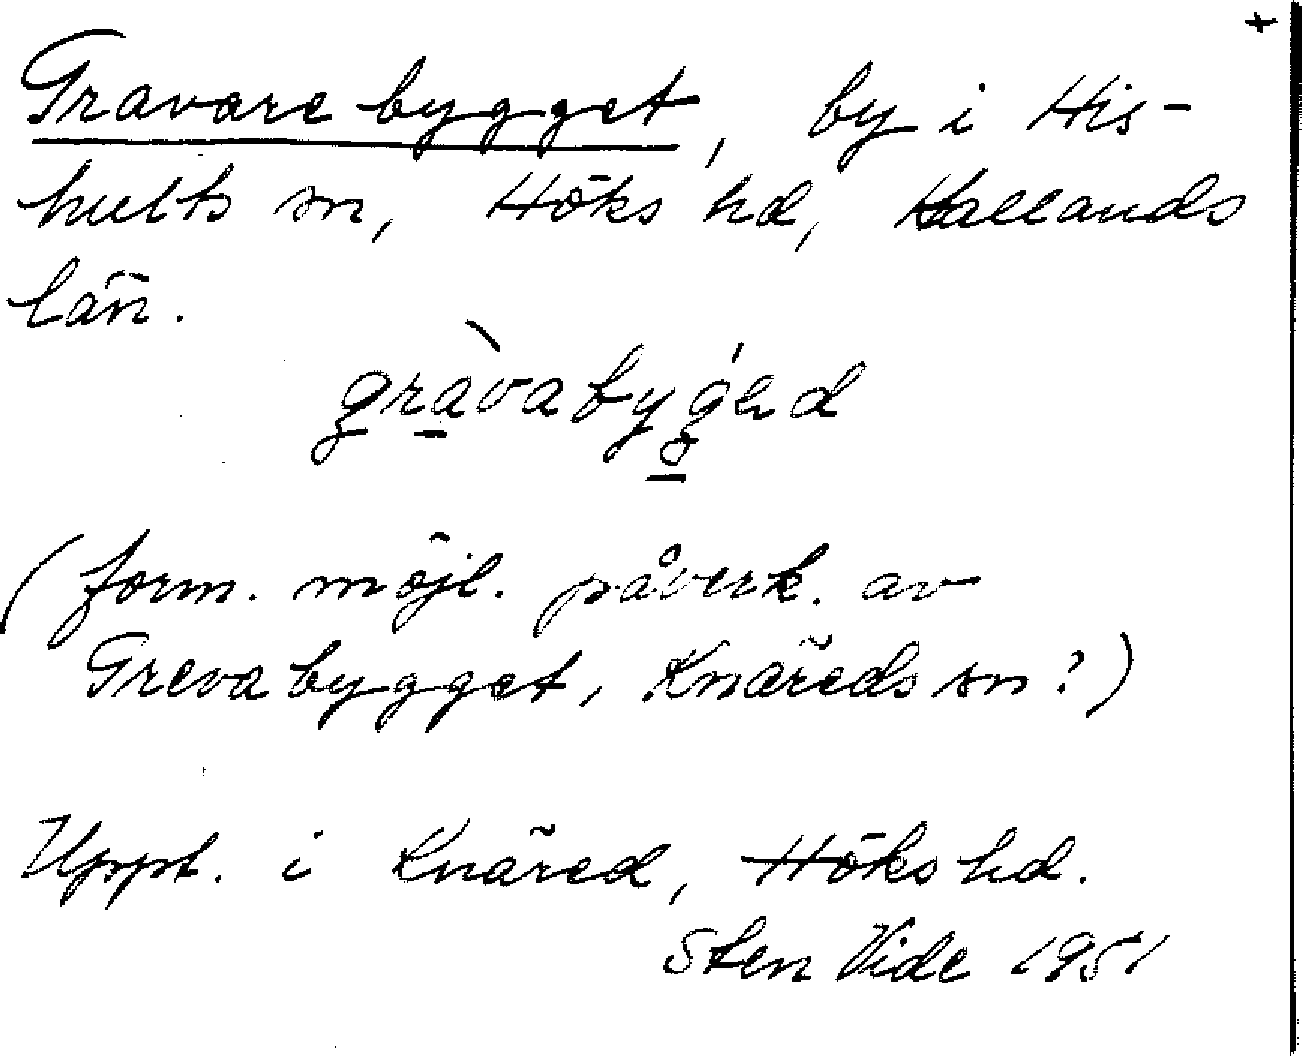 +
Gravarebygget, by i His-
hults sn, Höks hd, Hallands
län.
gràvabyǵed
(form. möjl. påverk. av
Grevabygget, Knäreds sn?)
Uppt. i Knäred, Höks hd.
Sten Vide 1951